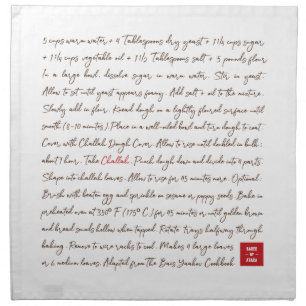 5 cups warm water + 4 Tablespoons dry yeast + 1 1/4 cups sugar
+ 1 1/4 cups vegetable oil + 1 1/2 Tablespoons salt + 5 pounds flour
In a large bowl, dissolve sugar in warm water. Stir in yeast.
Allow to sit until yeast appears foamy. Add salt + oil to the mixture.
Slowly add in flour. Knead dough on a lightly floured surface until
smooth (8-10 minutes). Place in a well-oiled bowl and turn dough to coat.
Cover with Challah Dough Cover. Allow to rise until doubled in bulk:
about 1 hour. Take Challah. Punch dough down and divide into 4 parts.
Shape into challah loaves. Allow to rise for 45 minutes more. Optional:
Brush with beaten egg and sprinkle on sesame or poppy seeds. Bake in
preheated oven at 350° F (175° C.) for 45 minutes or until golden brown
and bread sounds hollow when tapped. Rotate trays halfway through
baking. Remove to wire racks to cool. Makes 4 large loaves
or 6 medium loaves. Adapted from The Bais Yaakov Cookbook
BAKED
BY